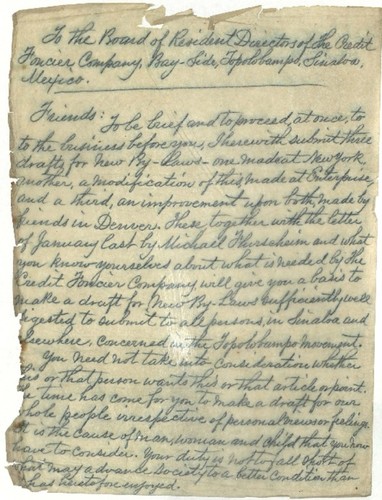 To the Board of Resident Directors of The Credit
Foncier Company, Bay-Side, Topolobampo, Sinaloa,
Mexico.
Friends: To be brief and to proceed, at once, to
to the business before you, I herewith submit three
drafts for New By-Laws - one made at New York
another, a modification of this made at Enterprise,
and a third, an improvement upon both, made by
friends in Denver. These together with the letter
of January last by Michael Flurscheim and what
you know yourselves about what is needed by The
Credit Foncier Company, will give you a basis to
make a draft for New By-Laws sufficiently well
digested to submit to all persons, in Sinaloa and
elsewhere, concerned in the Topolobampo movement.
You need not take into consideration whether
this or that person wants this or that article or point.
time has come for you to make a draft for our
whole people irrespective of personal views or feelings.
It is the cause of man, woman and child that you now
have to consider. Your duty is not to fall short of
what may advance society to a better condition than
has heretofore enjoyed.